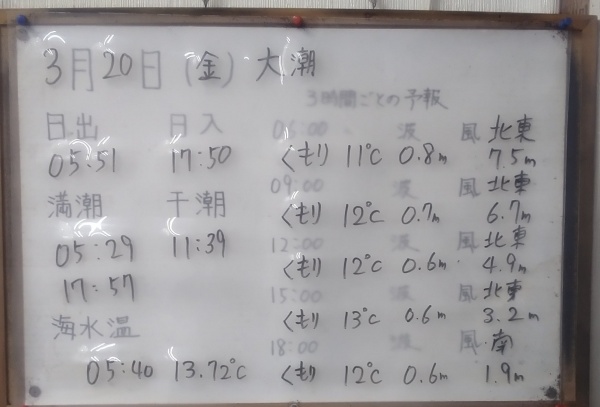 3月20日(金) 大潮
3時間ごとの予報
日出 日入
05:51 17:50
満潮 干潮
05:29 11:39
17:57
海水温
05:40 13.72℃
06:00 波 風 北東
くもり 11℃ 0.8m 7.5m
09:00 波 風 北東
くもり 12℃ 0.7m 6.7m
12:00 波 風 北東
くもり 12℃ 0.6m 4.9m
15:00 波 風 北東
くもり 13℃ 0.6m 3.2m
18:00 波 風 南
くもり 12℃ 0.6m 1.9m